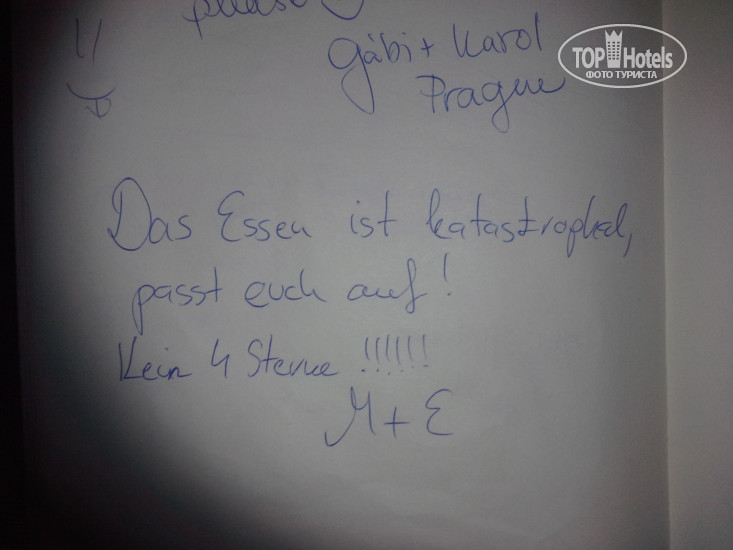 please
Gábi + Karol
Prague
Das Essen ist katastrophal,
passt euch auf!
Kein 4 Sterne !!!!!!
M + E
TOP Hotels
ФОТО ТУРИСТА